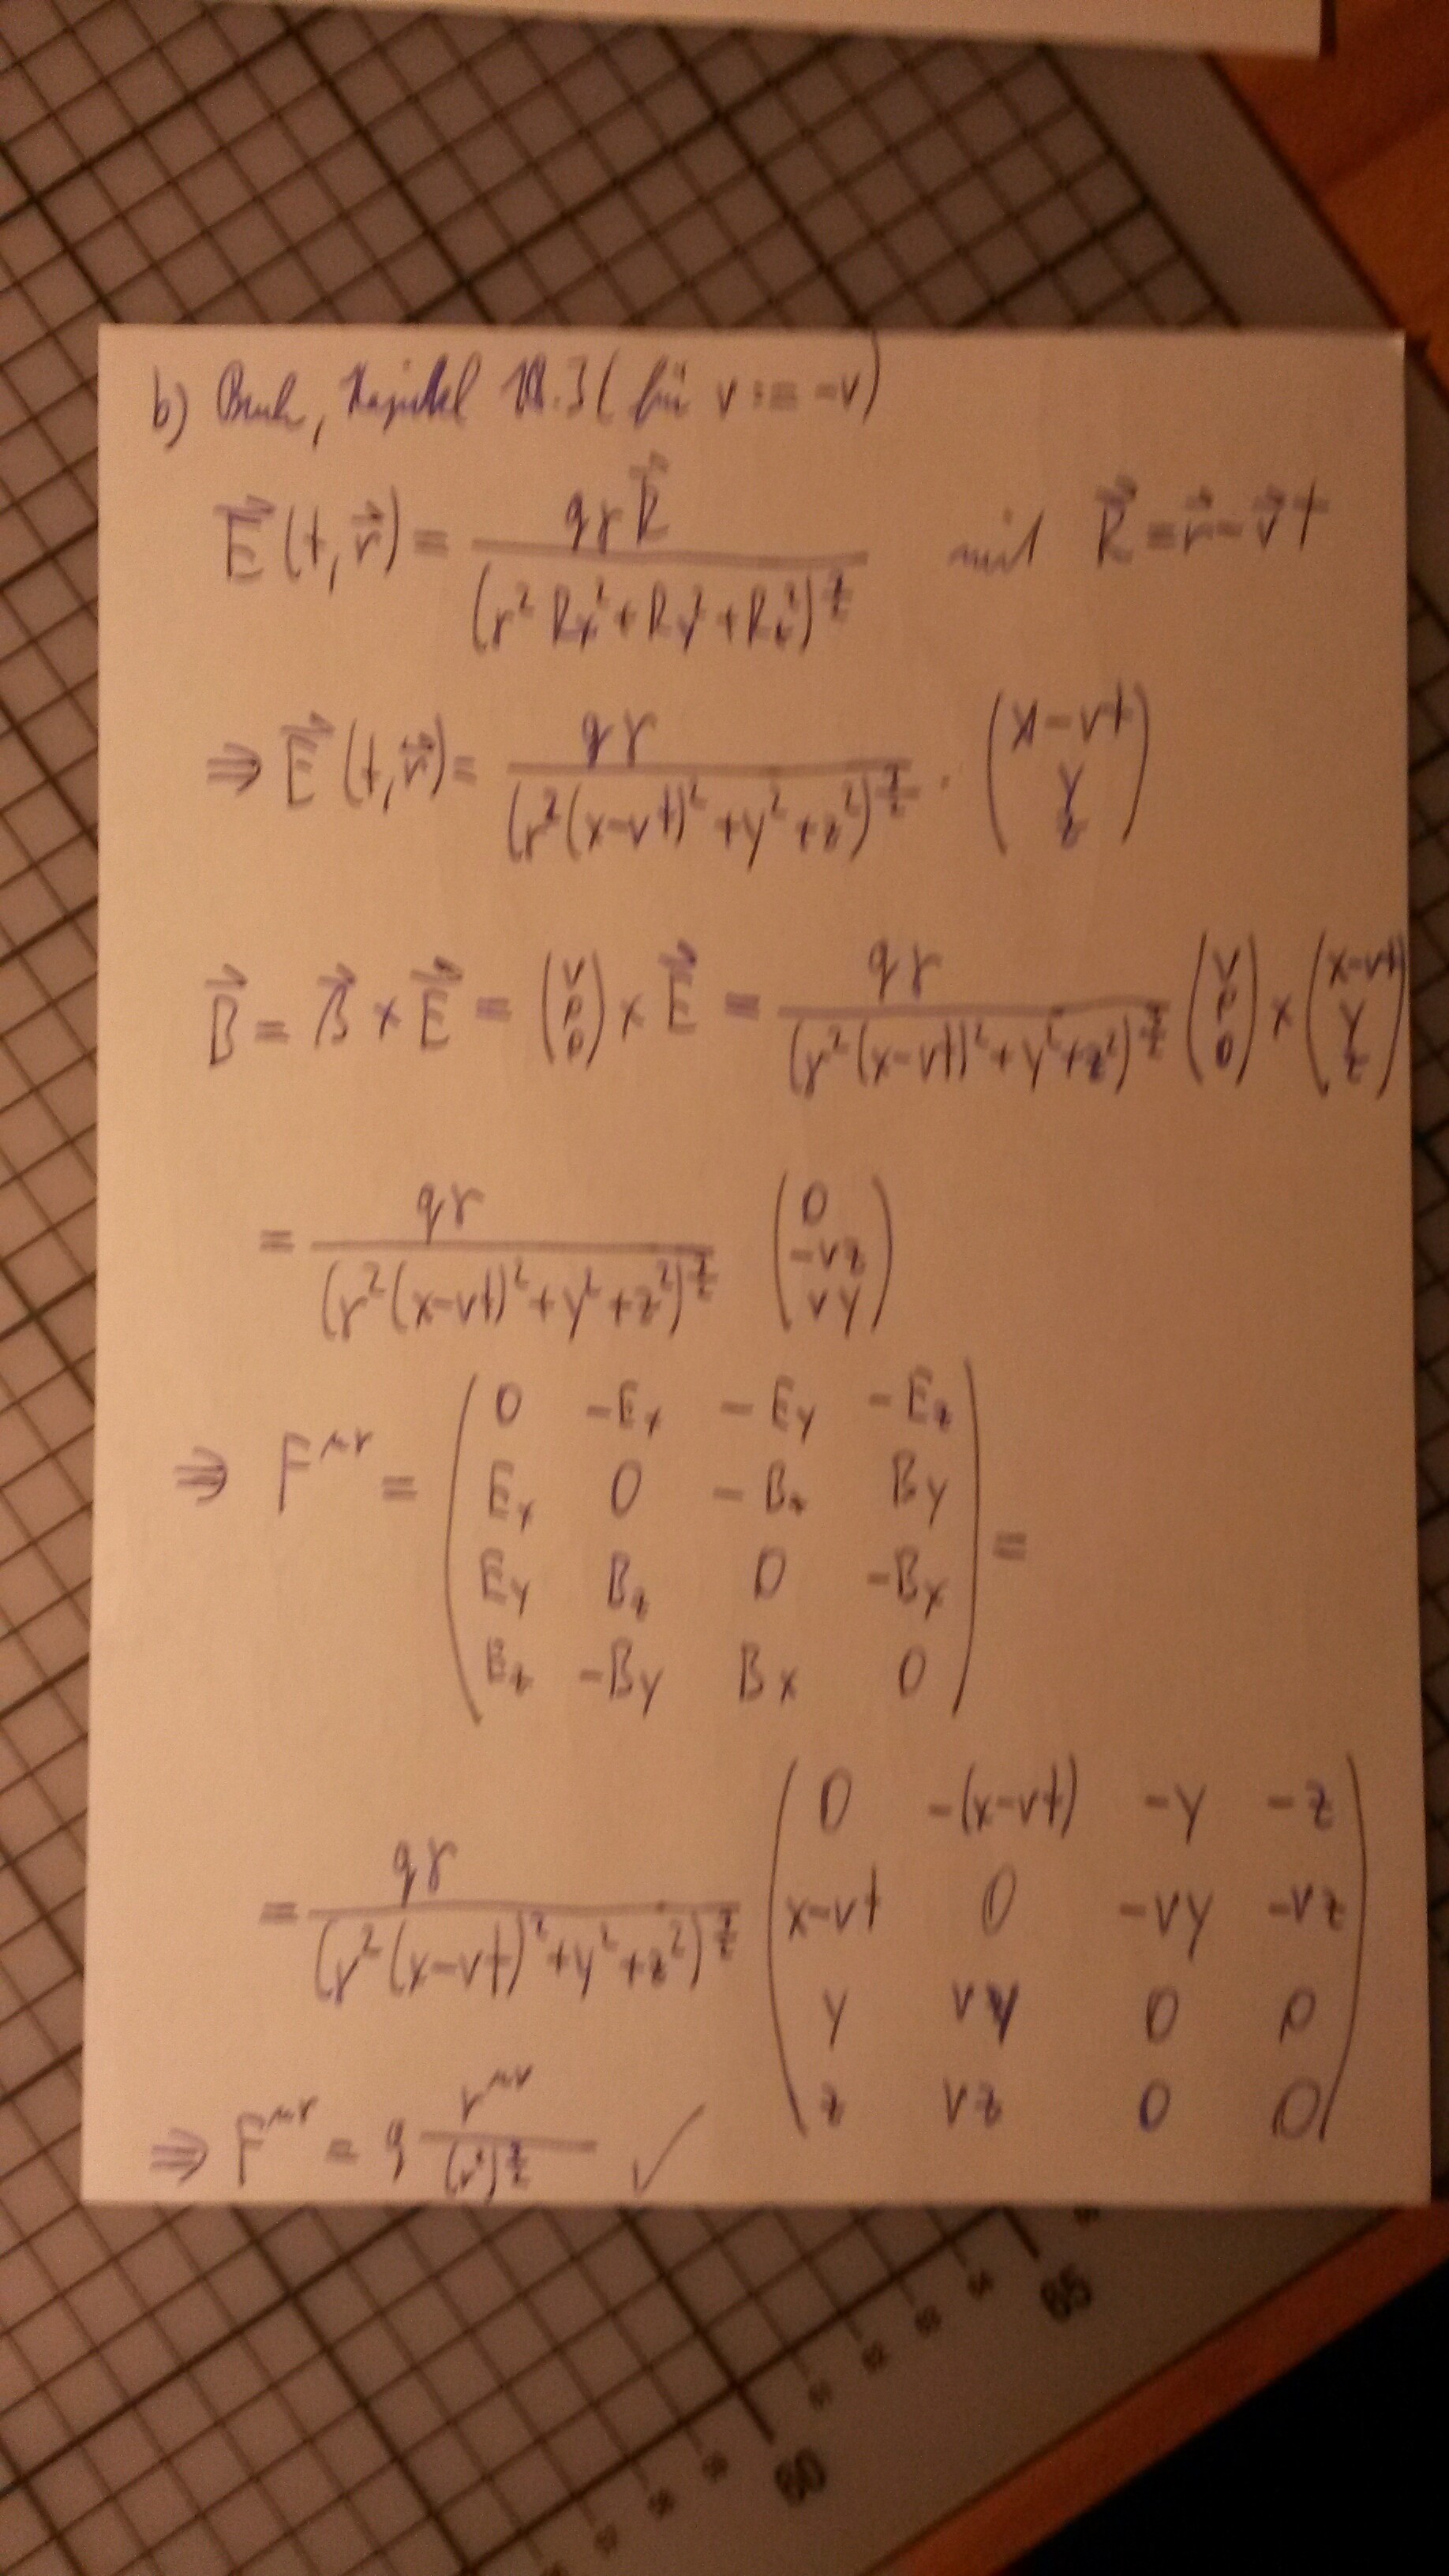 b) Buch, Kapitel 10.3 (für v := -v)
E⃗(t, r⃗) = qγR⃗ / (γ² Rx² + Ry² + Rz²)^(3/2) mit R⃗ = r⃗ - v⃗t
⇒ E⃗(t, r⃗) = qγ / (γ²(x-vt)² + y² + z²)^(3/2) · (x-vt, y, z)
B⃗ = β⃗ × E⃗ = (v, 0, 0) × E⃗ = qγ / (γ²(x-vt)² + y² + z²)^(3/2) (v, 0, 0) × (x-vt, y, z)
= qγ / (γ²(x-vt)² + y² + z²)^(3/2) (0, -vz, vy)
⇒ F^μν = ( 0 -Ex -Ey -Ez
Ex 0 -Bz By
Ey Bz 0 -Bx
Ez -By Bx 0 ) =
= qγ / (γ²(x-vt)² + y² + z²)^(3/2) ( 0 -(x-vt) -y -z
x-vt 0 -vy -vz
y vy 0 0
z vz 0 0 )
⇒ F^μν = q r^μν / (r²)^(3/2) ✓
65
60